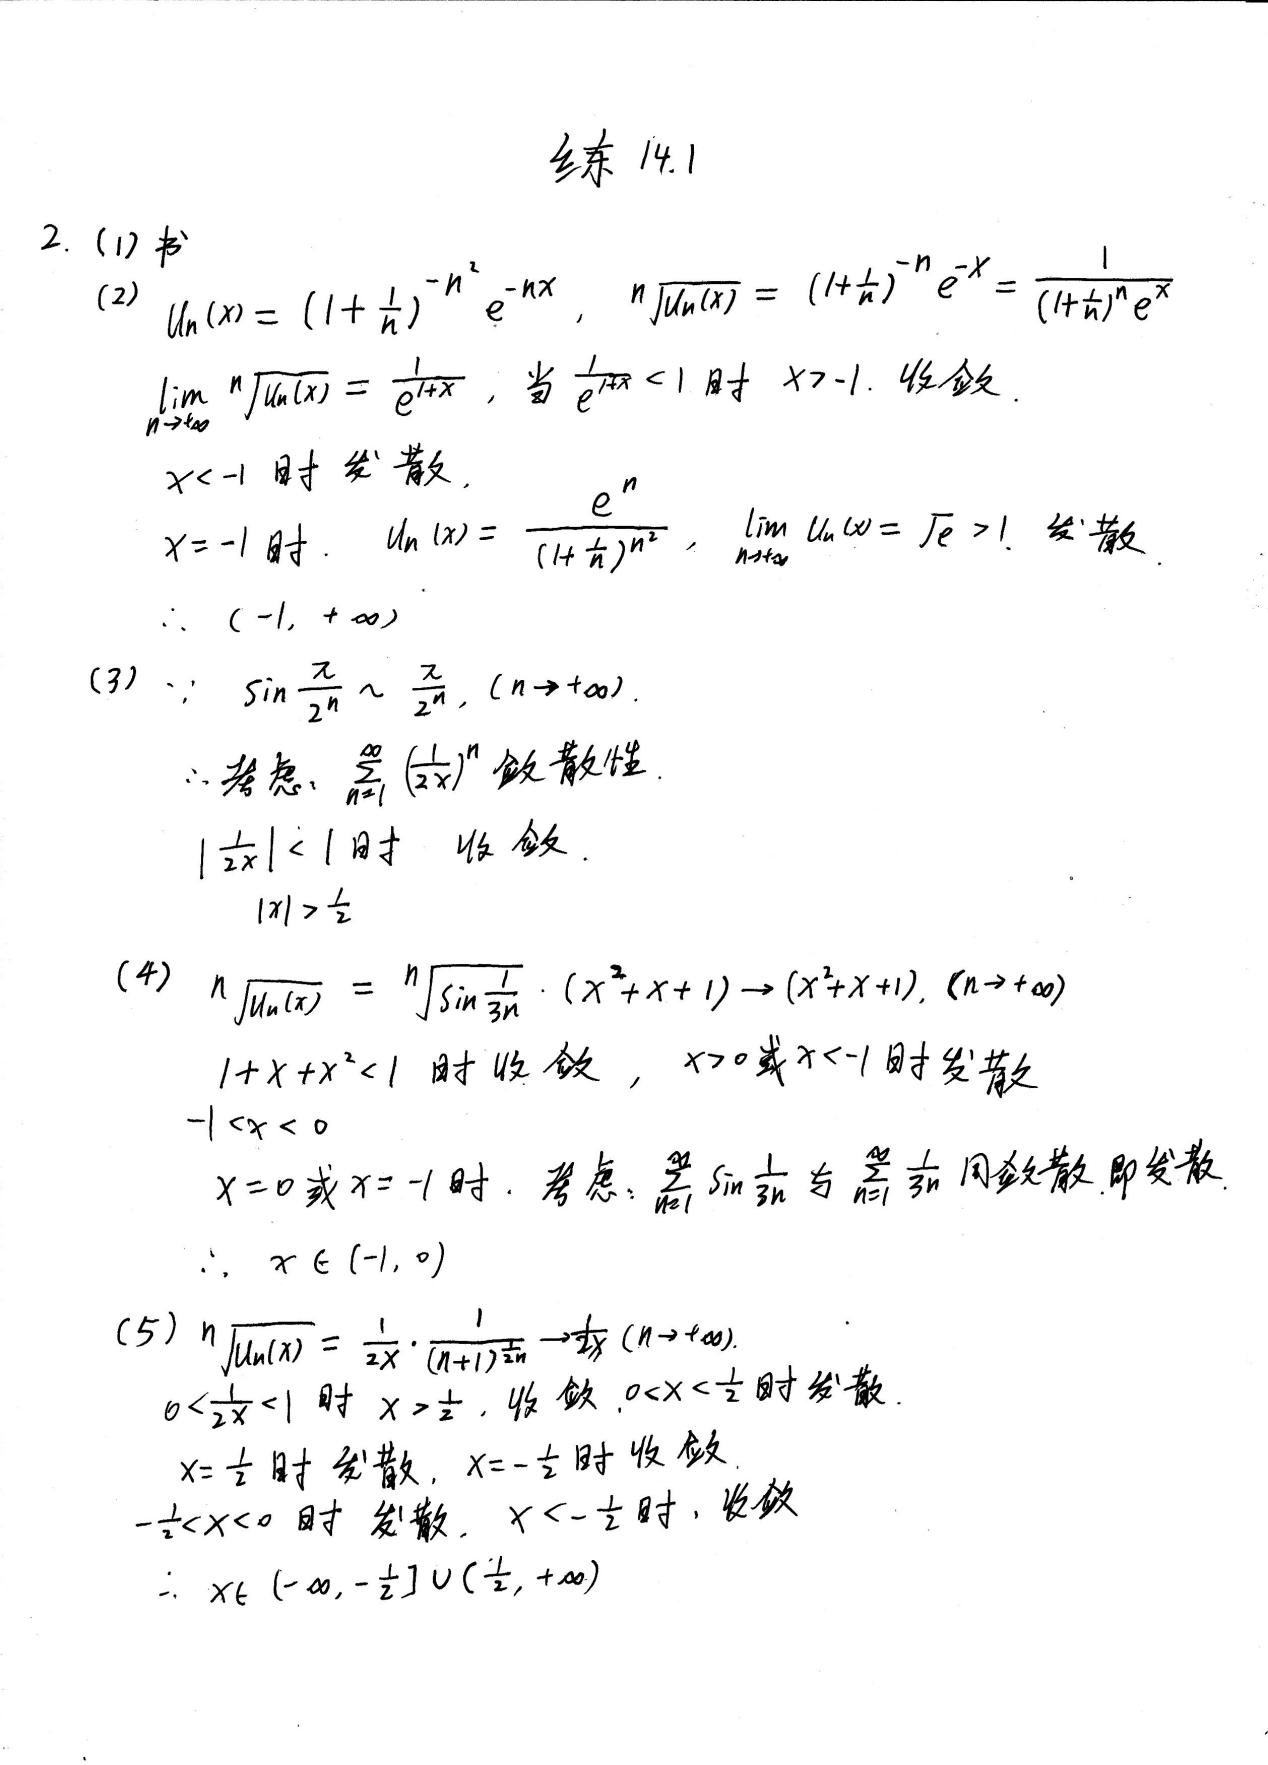 练 14.1
2. (1) 书
(2) Uₙ(x) = (1+1/n)^(-n²) e^(-nx), ⁿ√(Uₙ(x)) = (1+1/n)^(-n) e^(-x) = 1/((1+1/n)^n e^x)
lim_(n→+∞) ⁿ√(Uₙ(x)) = 1/e^(1+x), 当 1/e^(1+x) < 1 时 x>-1. 收敛.
x<-1 时 发散.
x=-1 时. Uₙ(x) = e^n/(1+1/n)^(n²), lim_(n→+∞) Uₙ(x) = √e >1. 发散.
∴ (-1, +∞)
(3) ∵ sin π/2^n ~ π/2^n, (n→+∞).
∴考虑: ∑_(n=1)^∞ (1/2x)^n 敛散性.
|1/2x| < 1 时 收敛.
|x| > 1/2
(4) ⁿ√(Uₙ(x)) = ⁿ√(sin 1/3n) · (x²+x+1) → (x²+x+1), (n→+∞)
1+x+x²<1 时收敛, x>0或x<-1时发散
-1<x<0
x=0或x=-1时. 考虑: ∑_(n=1)^∞ sin 1/3n 与 ∑_(n=1)^∞ 1/3n 同敛散.即发散.
∴ x∈(-1, 0)
(5) ⁿ√(Uₙ(x)) = 1/2x · 1/(n+1)^(1/2n) → 1/2x (n→+∞).
0<1/2x<1 时 x>1/2, 收敛.0<x<1/2时发散.
x=1/2时发散, x=-1/2时收敛.
-1/2<x<0 时 发散. x<-1/2时, 收敛
∴ x∈ (-∞, -1/2]∪(1/2, +∞)